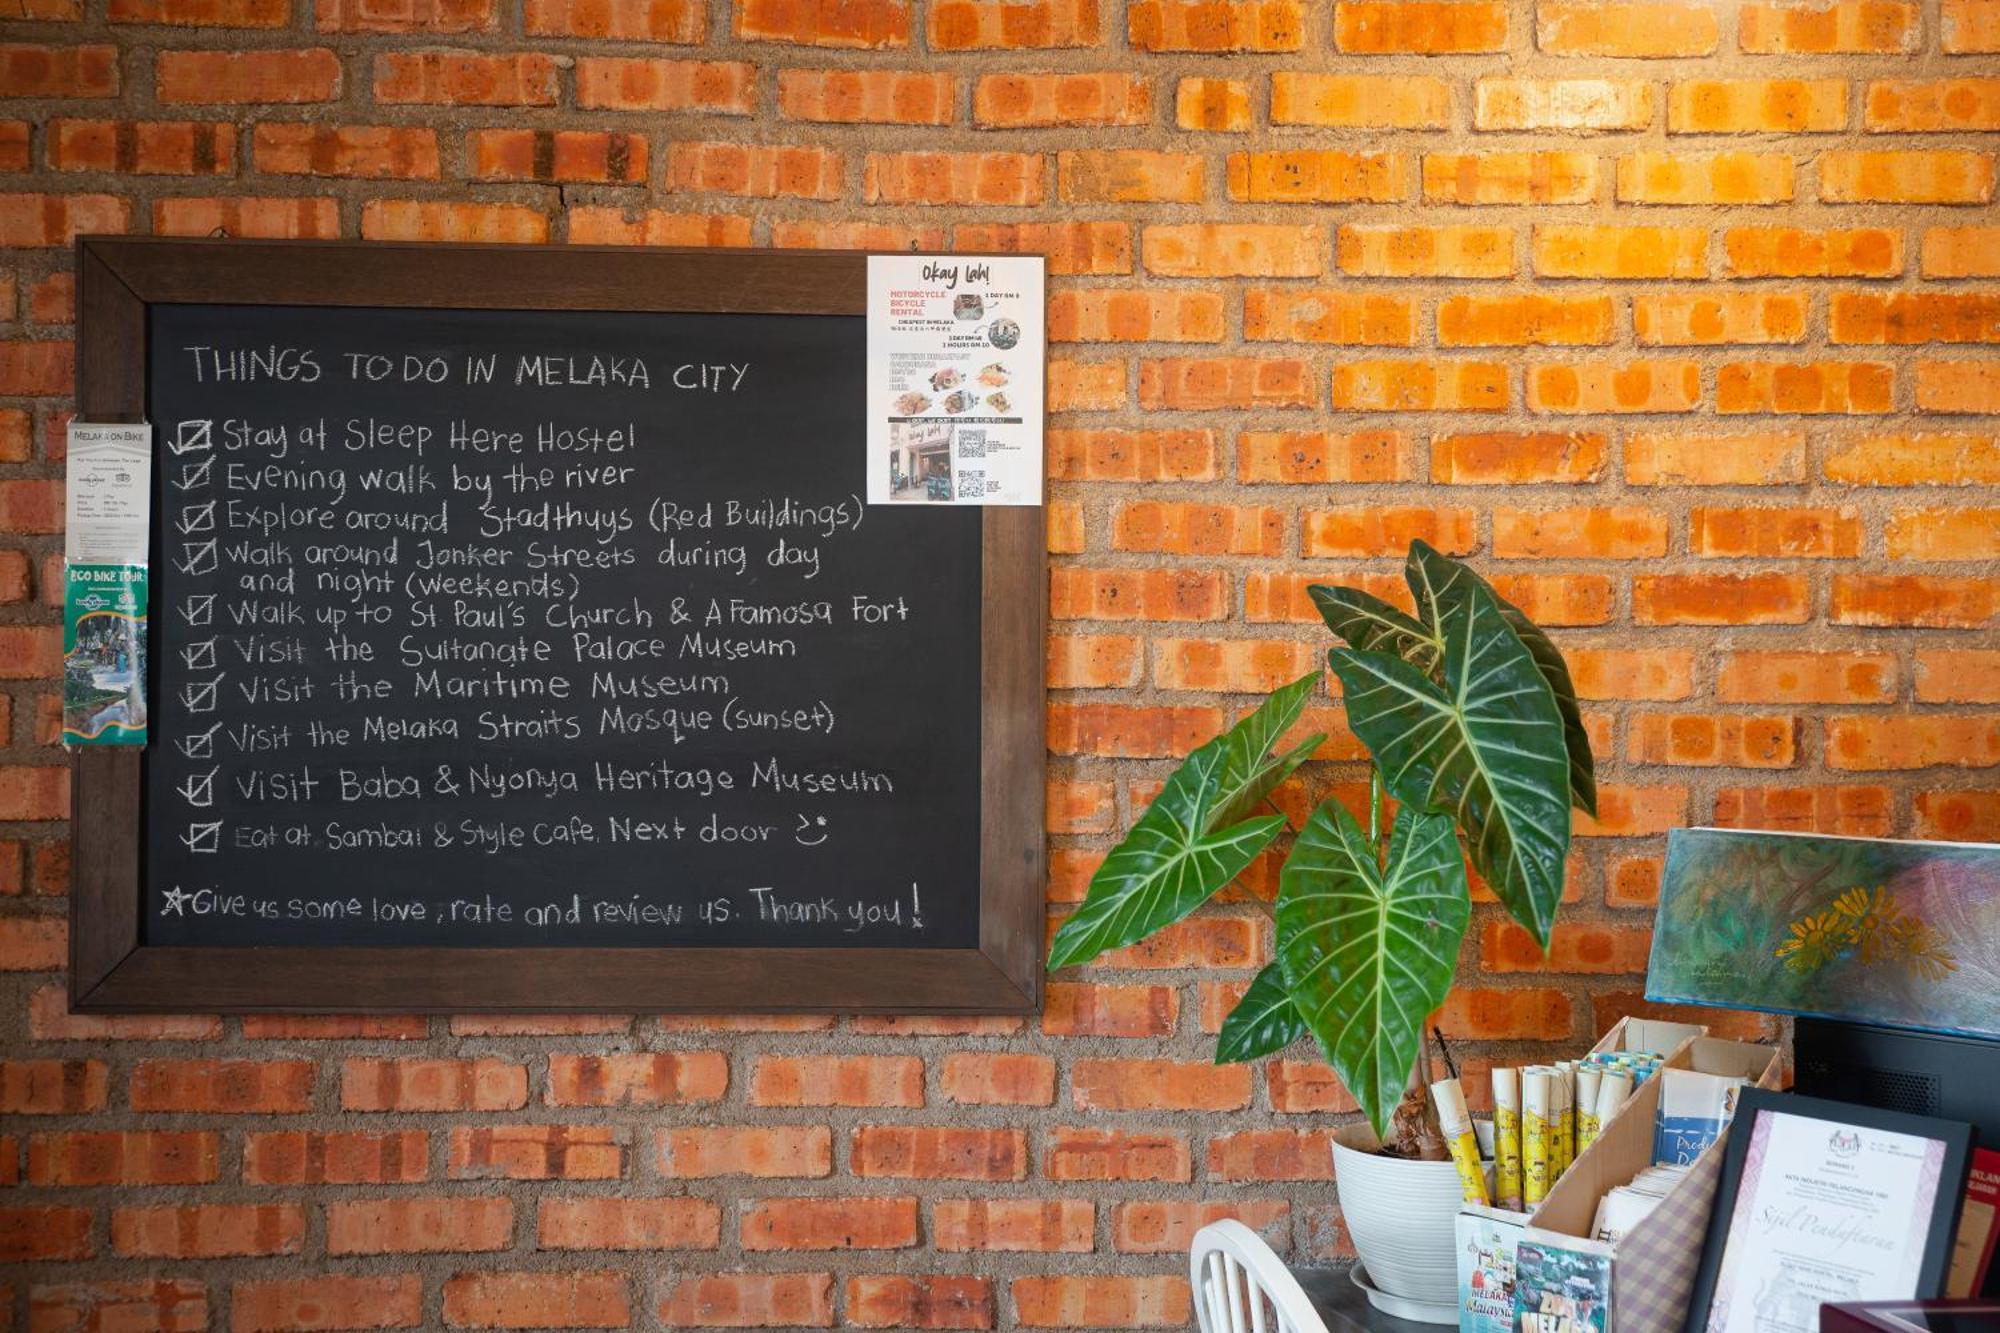 THINGS TO DO IN MELAKA CITY
Stay at Sleep Here Hostel
Evening walk by the river
Explore around Stadthuys (Red Buildings)
Walk around Jonker Streets during day
and night (weekends)
Walk up to St. Paul's Church & A Famosa Fort
Visit the Sultanate Palace Museum
Visit the Maritime Museum
Visit the Melaka Straits Mosque (sunset)
Visit Baba & Nyonya Heritage Museum
Eat at Sambal & Style Cafe, Next door
Give us some love, rate and review us. Thank you!
Okay Lah!
MOTORCYCLE
BICYCLE
RENTAL
CHEAPEST IN MELAKA
MELAKA ON BIKE
ECO BIKE TOUR
AKTA INDUSTRI PELANCONGAN 1992
Sijil Pendaftaran
MELAKA
Malaysia